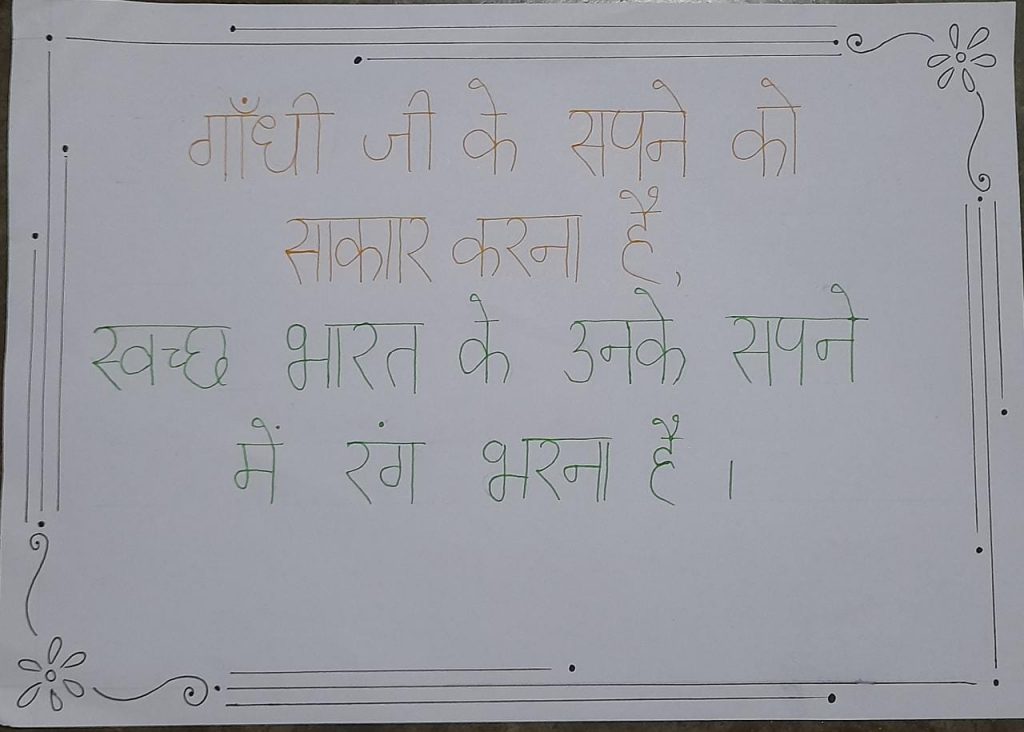 गाँधी जी के सपने को
साकार करना है,
स्वच्छ भारत के उनके सपने
में रंग भरना है ।